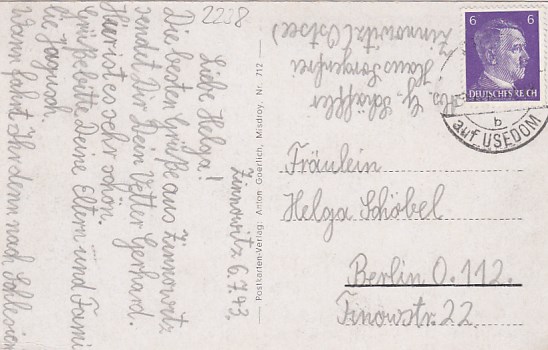 2238
Zinnowitz 6.7.43.
Liebe Helga!
Die besten Grüße aus Zinnowitz
sendet Dir Dein Vetter Gerhard.
Hier ist es sehr schön.
Grüße bitte Deine Eltern und Fami
lie
Wann fahrt Ihr denn nach Schlesien
Postkarten-Verlag: Anton Goerlich, Misdroy, Nr. 712
Haus Sorgenfrei
Zinnowitz (Ostsee)
6 6
DEUTSCHES REICH
b
auf USEDOM
Fräulein
Helga Schöbel
Berlin O. 112.
Finowstr. 22.